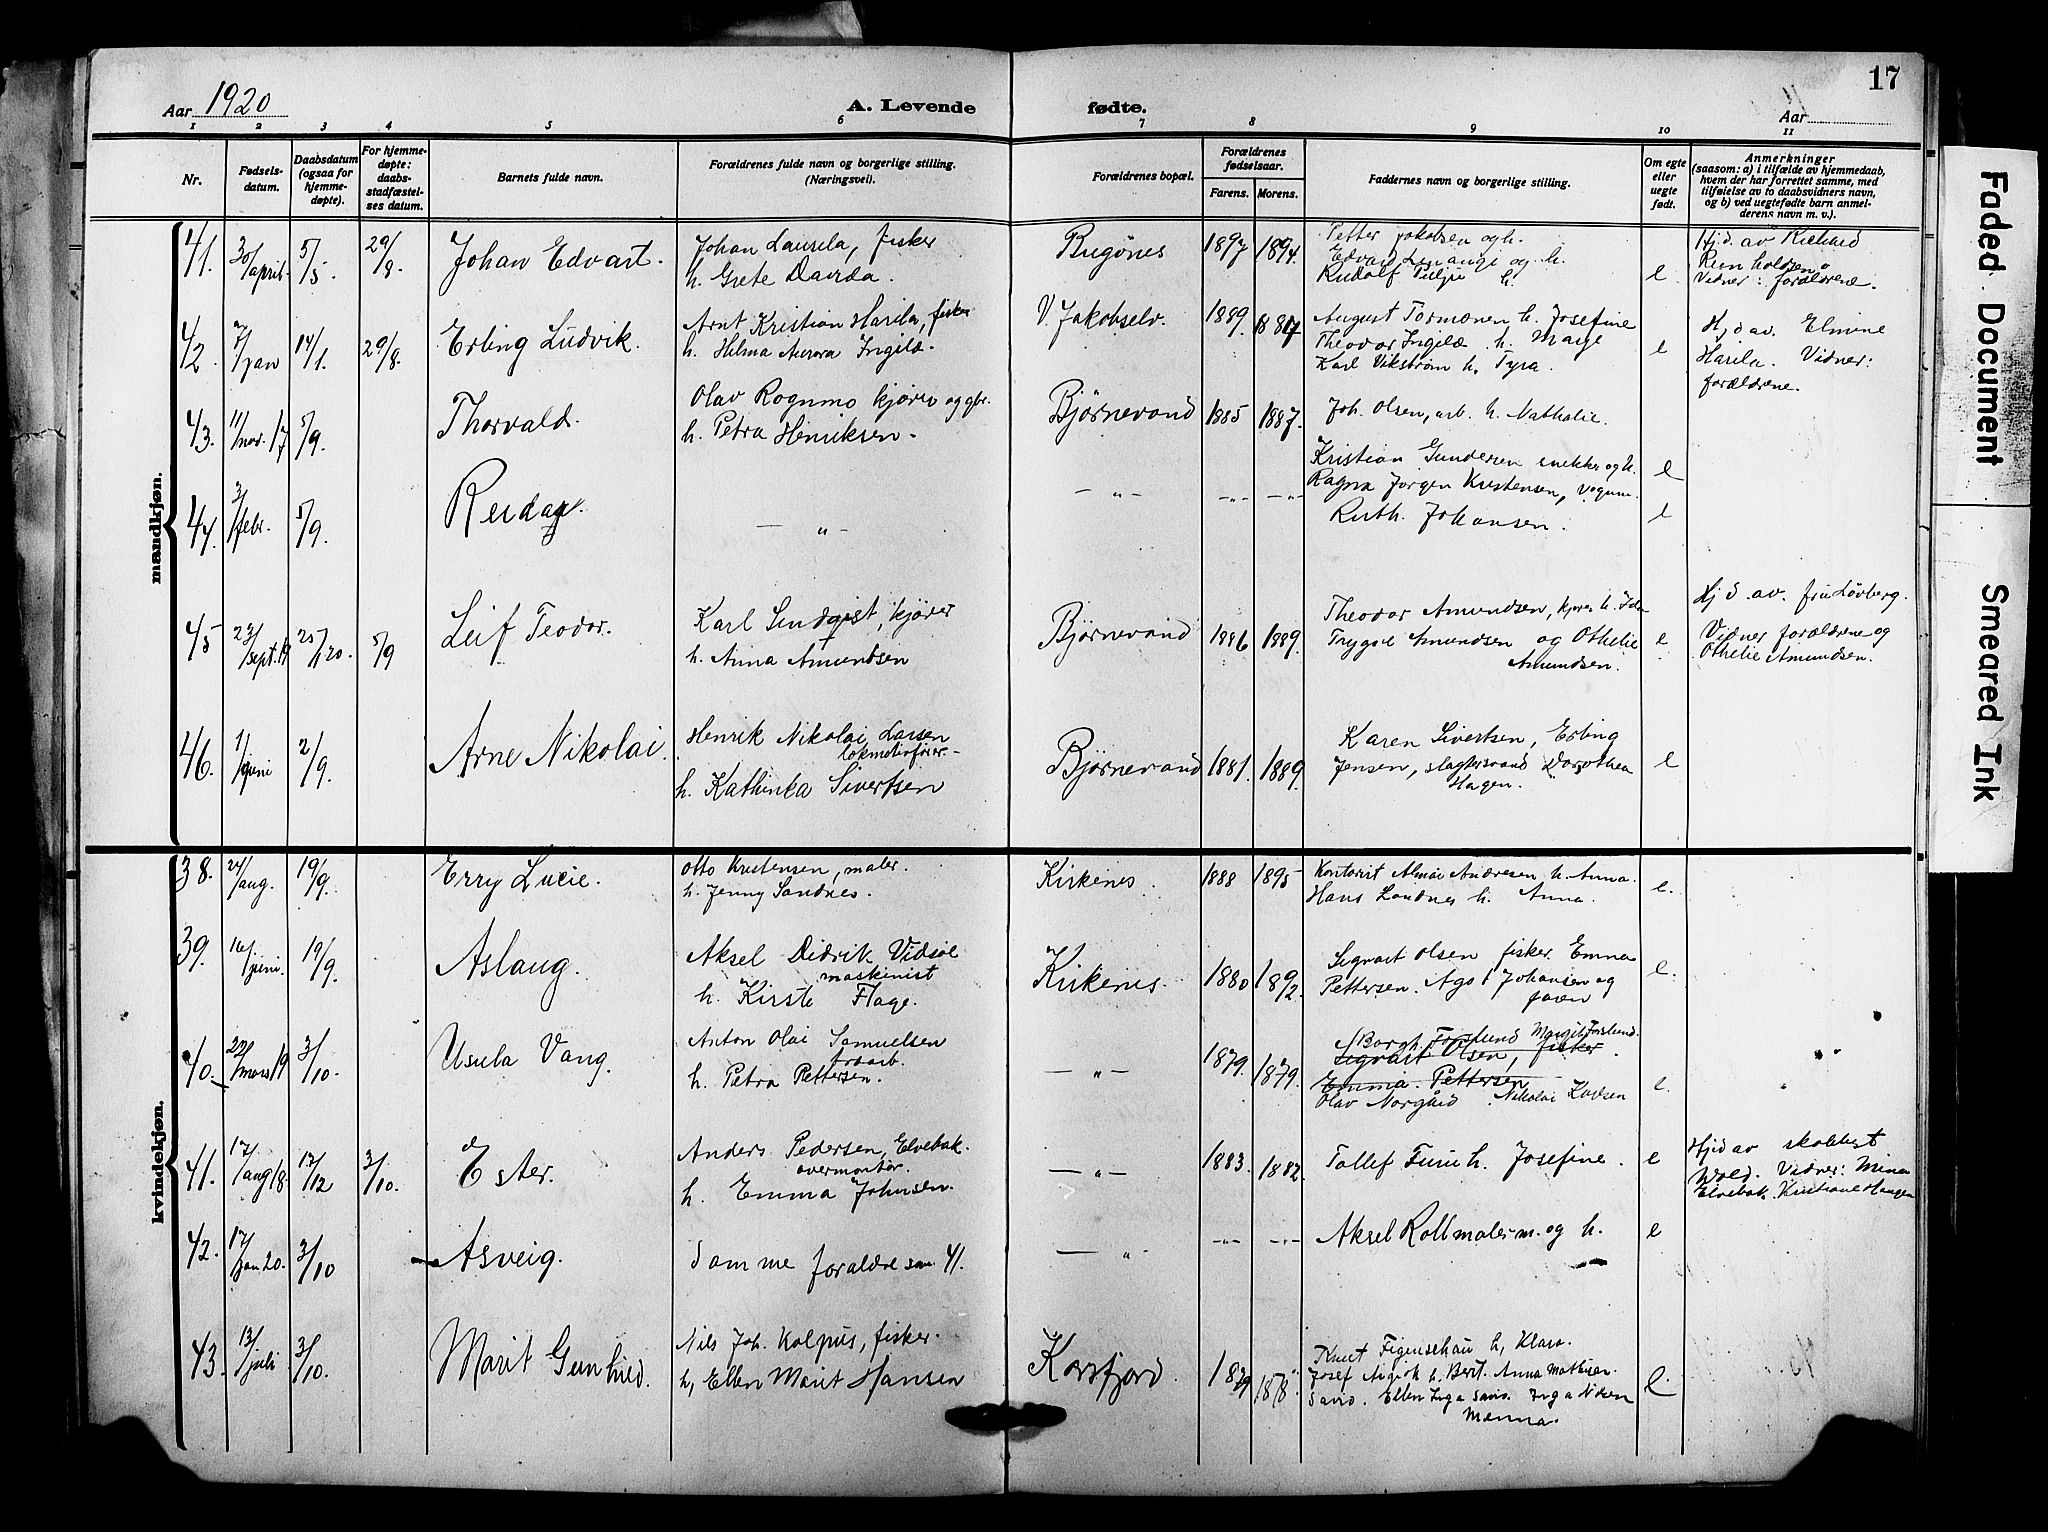 17
Aar 1920
A. Levende fødte.
Aar
1 2 3 4 5 6 7 8 9 10 11
Nr.
Fødsels-
datum.
Daabsdatum
(ogsaa for
hjemme-
døpte).
For hjemme-
døpte:
daabs-
stadfæstel-
ses datum.
Barnets fulde navn.
Forældrenes fulde navn og borgerlige stilling.
(Næringsvei).
Forældrenes bopæl.
Forældrenes
fødselsaar.
Farens. Morens.
Faddernes navn og borgerlige stilling.
Om egte
eller
uegte
født.
Anmerkninger
(saasom: a) i tilfælde av hjemmedaab,
hvem der har forrettet samme, med
tilføielse av to daabsvidners navn,
og b) ved uegtefødte barn anmel-
derens navn m. v.).
mandkjøn.
41. 30/april 5/5. 29/8. Johan Edvart.
Johan Laurila, fisker
h. Grete Davida.
Bugönes 1897 1894.
Petter Jakobsen og h.
Edvard og h.
Rudolf h.
e
Hjd. av Richard
Reinholdsen
Vidner: forældrene.
42. /jan 14/1. 29/8. Erling Ludvik.
Arnt Kristian Harila, fisker
h. Helma Aurora Ingilæ.
V. Jakobselv. 1889. 1884
August Tormonen h. Josefine
Theodor Ingilæ h. Marie
Karl Vikström h. Tyra.
e
Hjd av. Elmine
Harila. Vidner:
forældrene.
43. 11/nov. 17 5/9. Thorvald.
Olav Rognmo kjörer og gbr.
h. Petra Henriksen.
Björnevand 1885 1887.
Joh. Olsen, arb. h. Nathalie.
Kristian Gundersen snekker og h.
e
44. 3/febr. 5/9. Reidar.
— " —
— " — — " — — " —
Ragna Jörgen Kristensen,
Ruth. Johansen.
e
45 23/sept. 19 25/1 20. 5/9 Leif Teodor.
Karl Lindqist, kjörer
h. Anna Amundsen
Björnevand 1886 1889.
Theodor Amundsen, kjörer h. Ida
Trygve Amundsen og Othelie
Amundsen.
e
Hjd. av. fru Lövberg.
Vidner forældrene og
Othelie Amundsen.
46. 1/juni 2/9. Arne Nikolai.
Henrik Nikolai Larsen
lokmotivförer
h. Kathinka Sivertsen
Björnevand 1881. 1889.
Karen Sivertsen, Erling
Jensen, slagtersvend Dorothea
Hagen.
e
kvindekjøn.
38. 24/aug. 19/9. Erry Lucie.
Otto Kristensen, maler.
h. Jenny Sandnes.
Kirkenes. 1888 1895
Kontorist Almar Andresen h. Anna.
Hans Sandnes h. Anna.
e.
39. 16/juni. 19/9. Aslaug.
Aksel Didrik Vidsöe
maskinist
h. Kirste Flage.
Kirkenes. 1880 1892.
Sigvart Olsen fisker. Emma
Pettersen. Agot Johansen og
faren
e.
40. 22/mars 19 3/10. Usula Vang.
Anton Olai Samuelsen
h. Petra Pettersen.
— " — 1879. 1879.
Borgh. Forslund Margit Forslund.
Sigvart Olsen, fisker
Emma Pettersen
Olav Norgård. Nikolai
e.
41. 17/aug 18. 17/12 3/10. Ester.
Anders Pedersen, Elvebak
overmontör.
h. Emma Johnsen.
— " — 1883. 1882
Tollef h. Josefine.
e
Hjd av skolebest
Wold. Vidner: Mina
Elvebak. Kristiane Haugen
42. 17/jan 20. 3/10 Asveig.
Samme foraldre som 41.
— " — — " — — " —
Aksel Roll malerm. og h.
e
43. 13/juli 3/10. Marit Gunhild.
Nils Joh. Kolpus, fisker.
h, Ellen Marit Hansen
Korsfjord. 1879 1878
Knut Figenschau h, Klara.
Josef h. Berit. Anna Mathisen
Ellen Inga Inga Nilsen
Menna.
e.
Faded Document
Smeared Ink